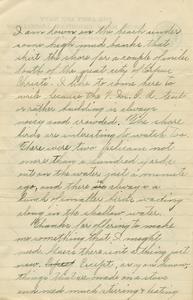 I am down on the beach under
some high mud banks that
skirt the shore for a couple of miles
south of the great city of Corpus
Christi. I like to come here to
write because the
rather building is always
noisy and crowded. The shore
birds are interesting to watch too.
There were two pelicans not
more than a hundred yards
out on the water just a minute
ago, and there is always a
bunch of smaller birds wading
along in the shallow water.
Thanks for offering to make
me something that I might
need. There isn't a thing just
now. Except, are you know
things that are made on a stove
and need much stirring & testing